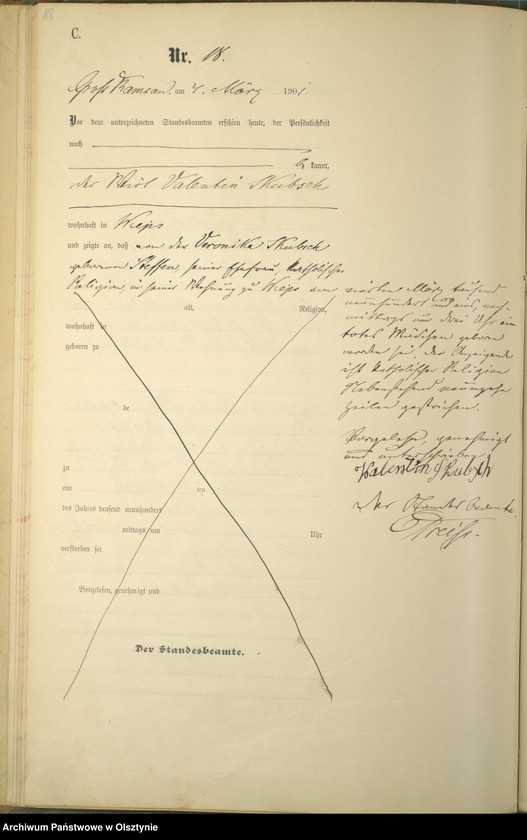 18
C.
Nr. 18.
Groß Kamsau, am 4. März 1901.
Vor dem unterzeichneten Standesbeamten erschien heute, der Persönlichkeit
nach
kannt,
der Wirt Valentin Skubsch
wohnhaft in Wieps
und zeigte an, daß von der Veronika Skubsch
geborenen Steffen, seiner Ehefrau, katholischer
Religion, in seiner Wohnung zu Wieps am
alt, Religion,
wohnhaft in
geboren zu
de
zu
am ten
des Jahres tausend neunhundert
mittags um Uhr
verstorben sei
Vorgelesen, genehmigt und
Der Standesbeamte.
vierten März tausend
neunhundert und eins, nach-
mittags um drei Uhr ein
totes Mädchen geboren
worden sei. Der Anzeigende
ist katholischer Religion
Nebenstehend neunzehn
Zeilen gestrichen.
Vorgelesen, genehmigt
und unterschrieben
Valentin Skubsch
Der Standesbeamte.
Preiß.
Archiwum Państwowe w Olsztynie